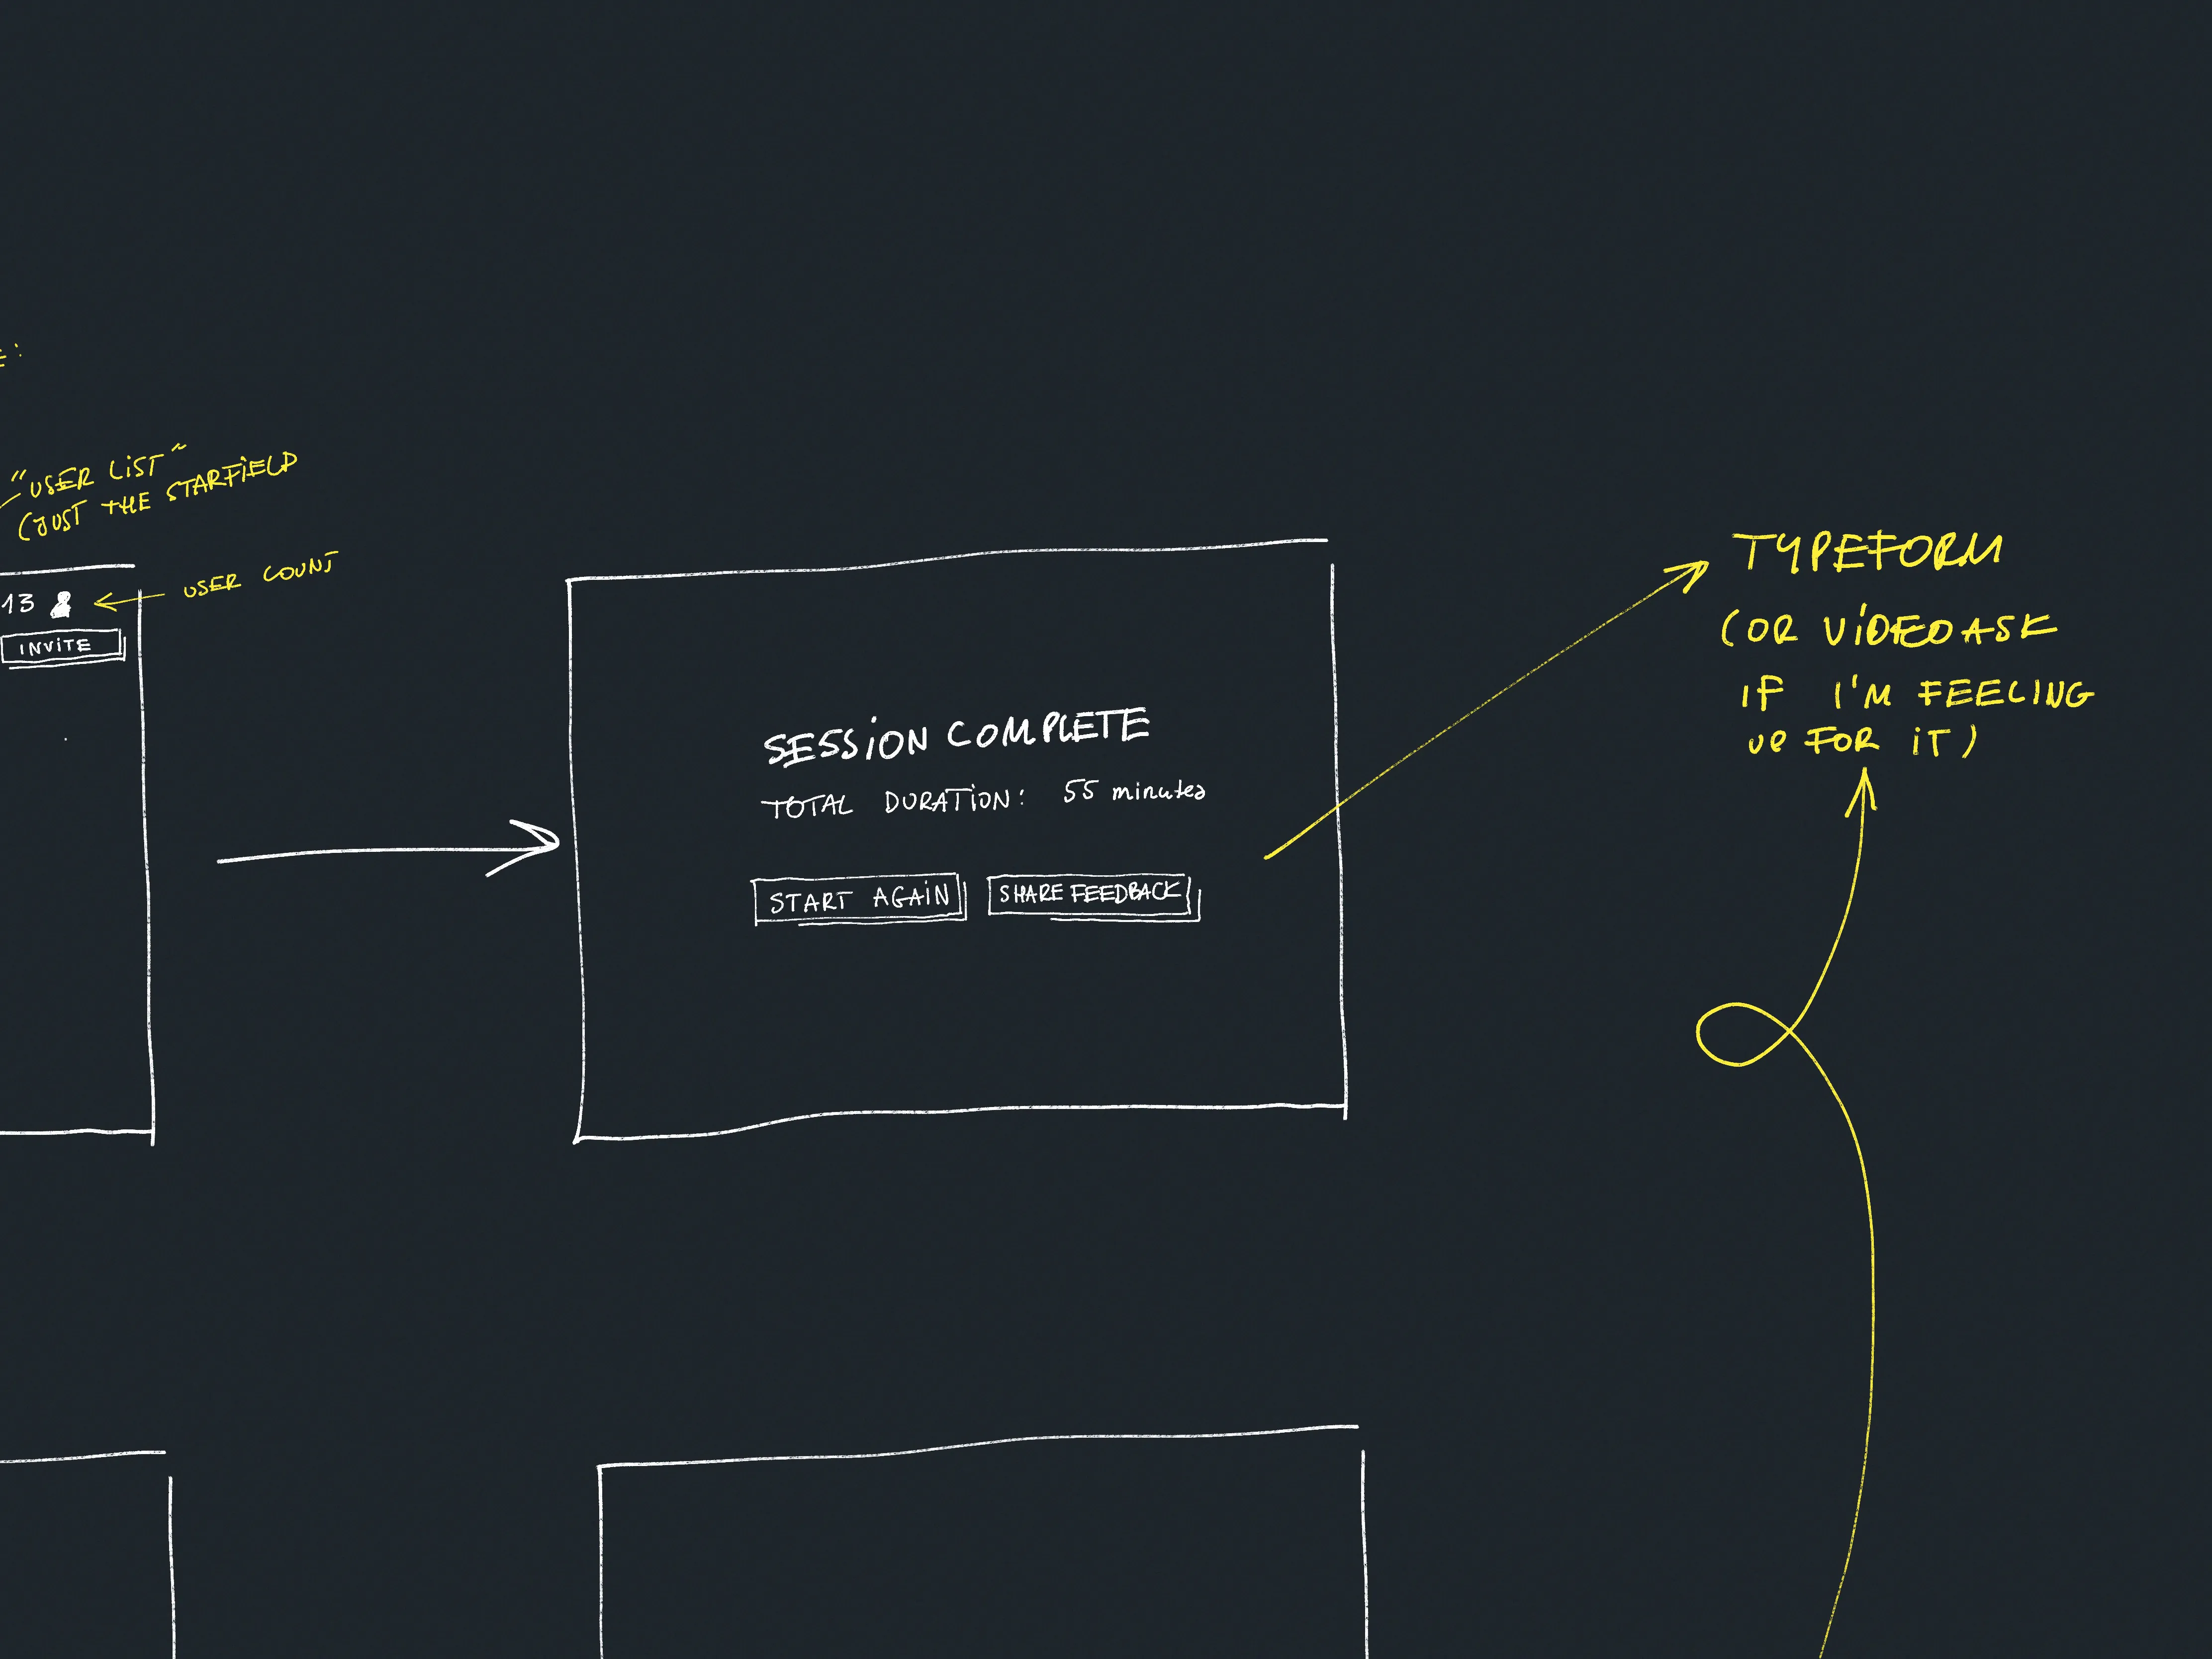 "USER LIST"
(JUST THE STARFIELD
USER COUNT
13
INVITE
SESSION COMPLETE
TOTAL DURATION: 55 minutes
START AGAIN
SHARE FEEDBACK
TYPEFORM
(OR VIDEOASK
IF I'M FEELING
UP FOR IT)